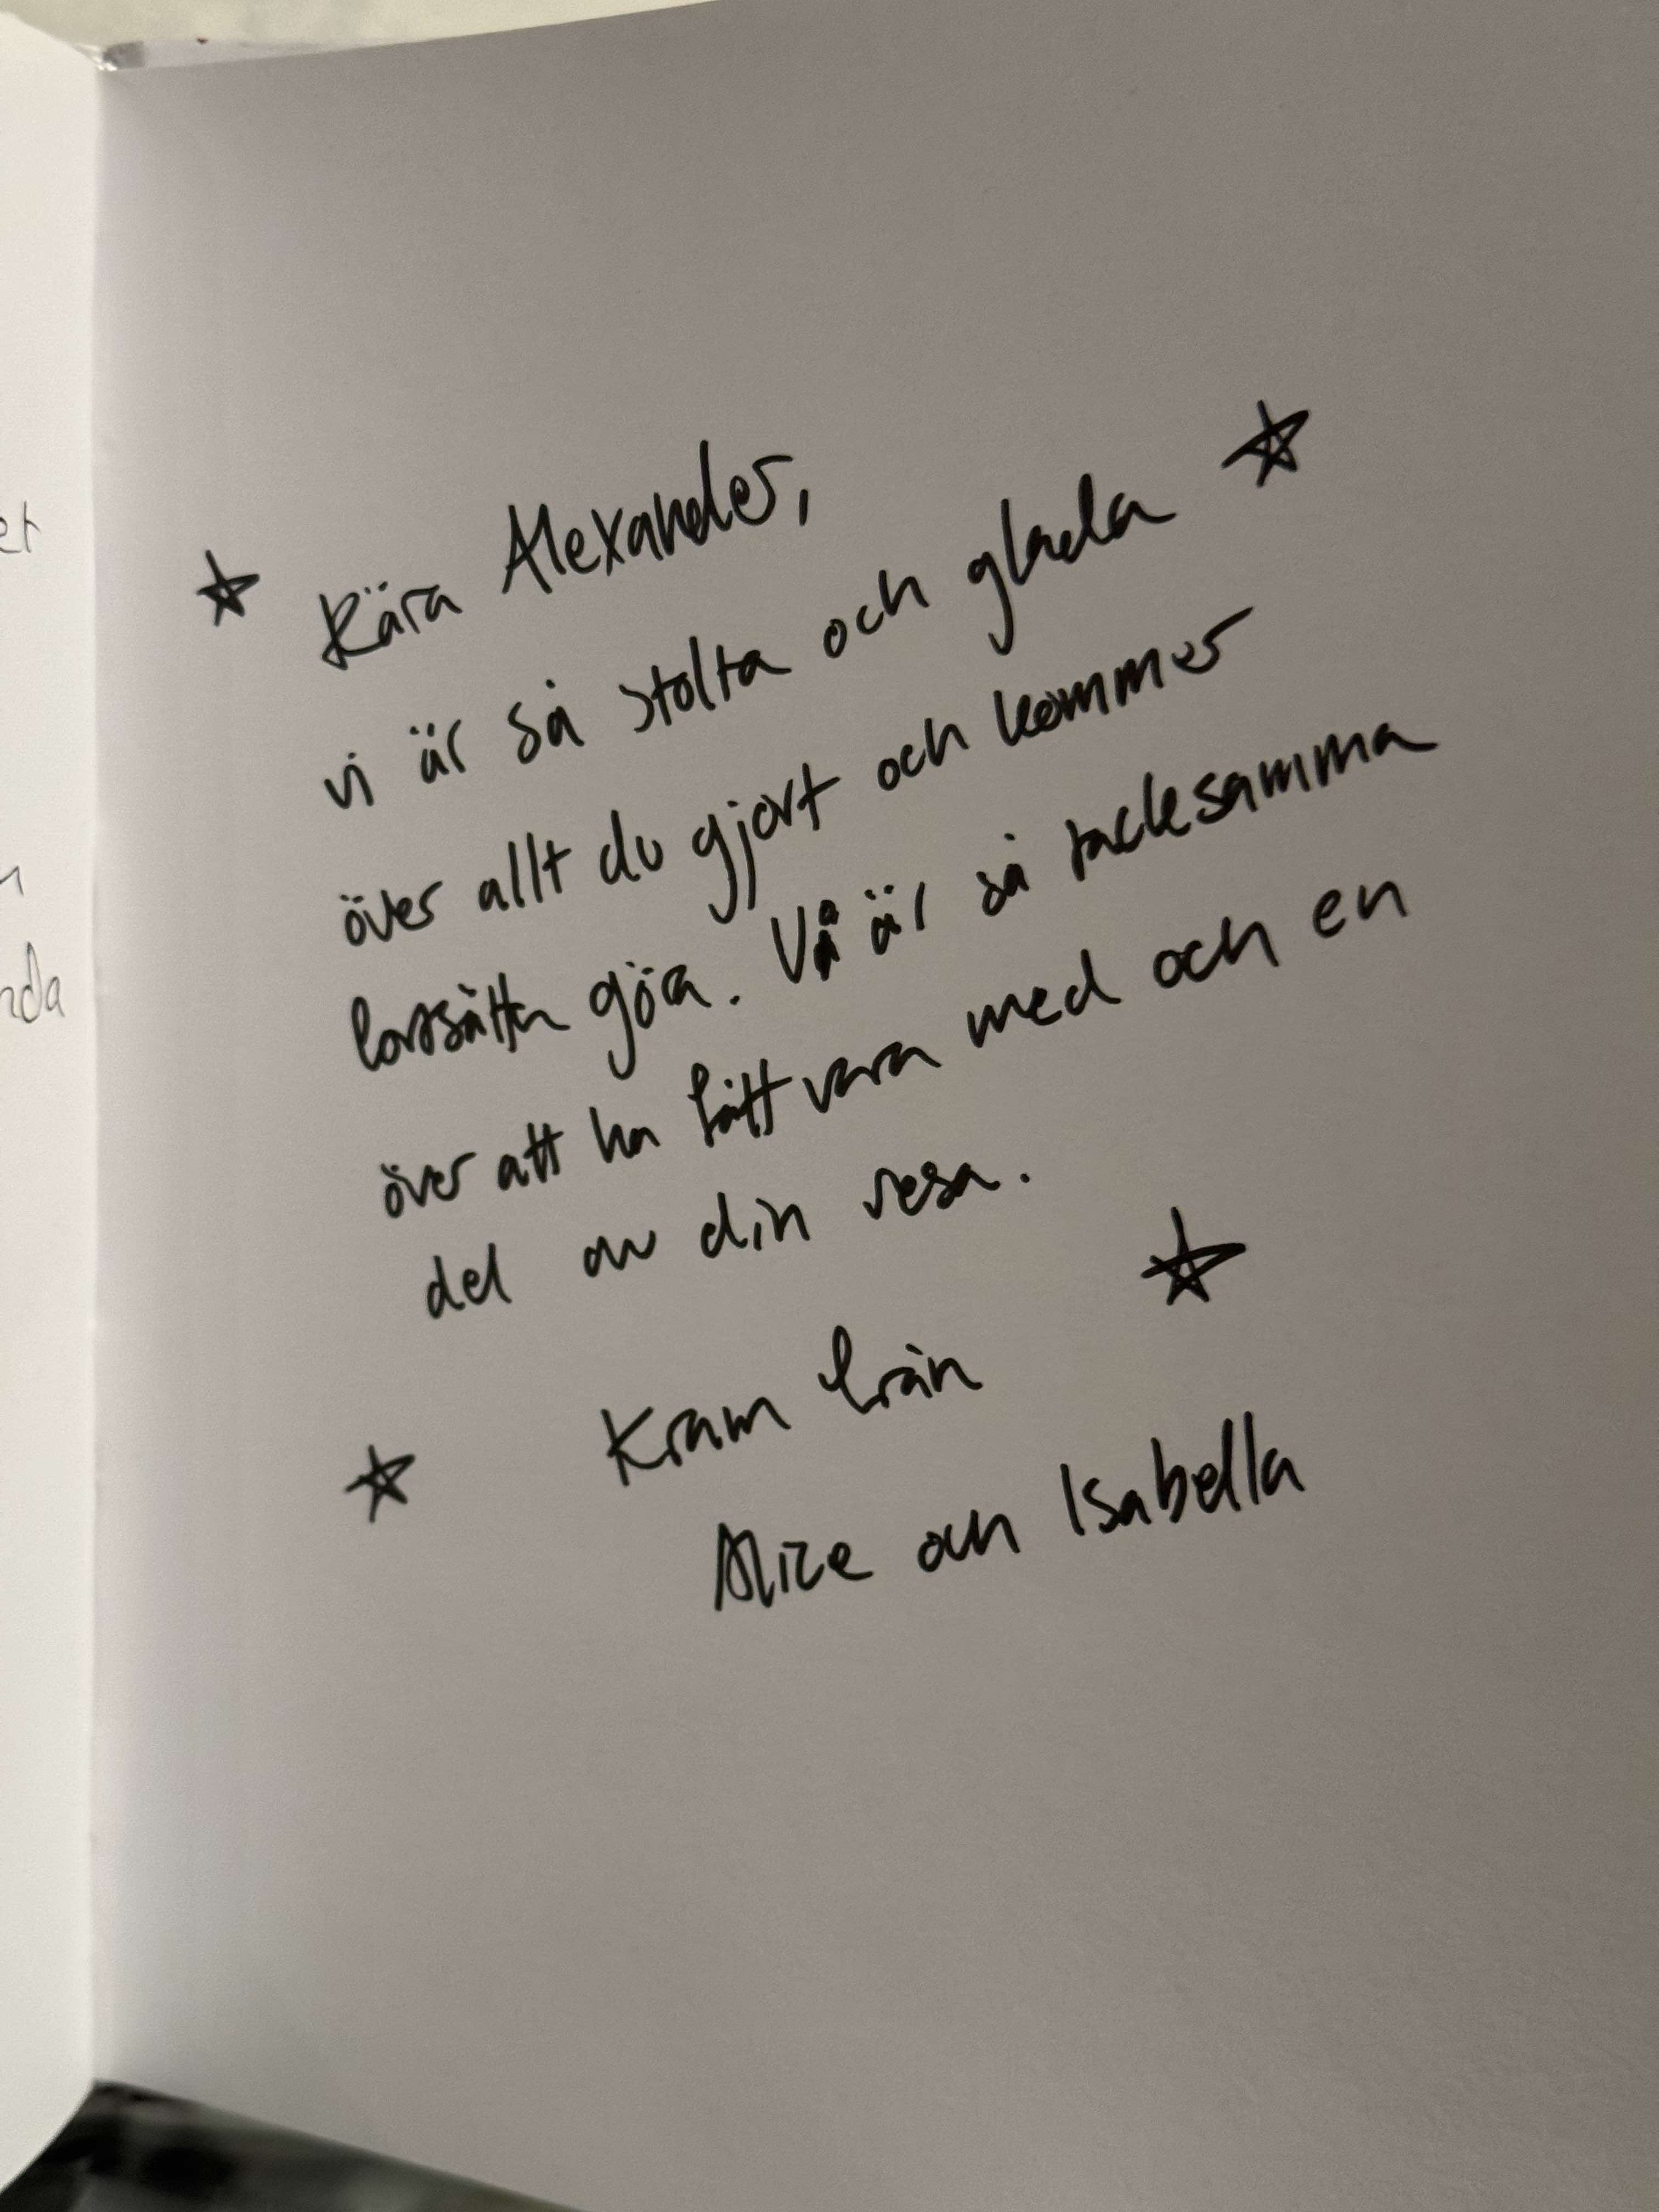 er
nda
Kära Alexander,
vi är så stolta och glada
över allt du gjort och kommer
fortsätta göra. Vi är så tacksamma
över att ha fått vara med och en
del av din resa.
Kram från
Alice och Isabella